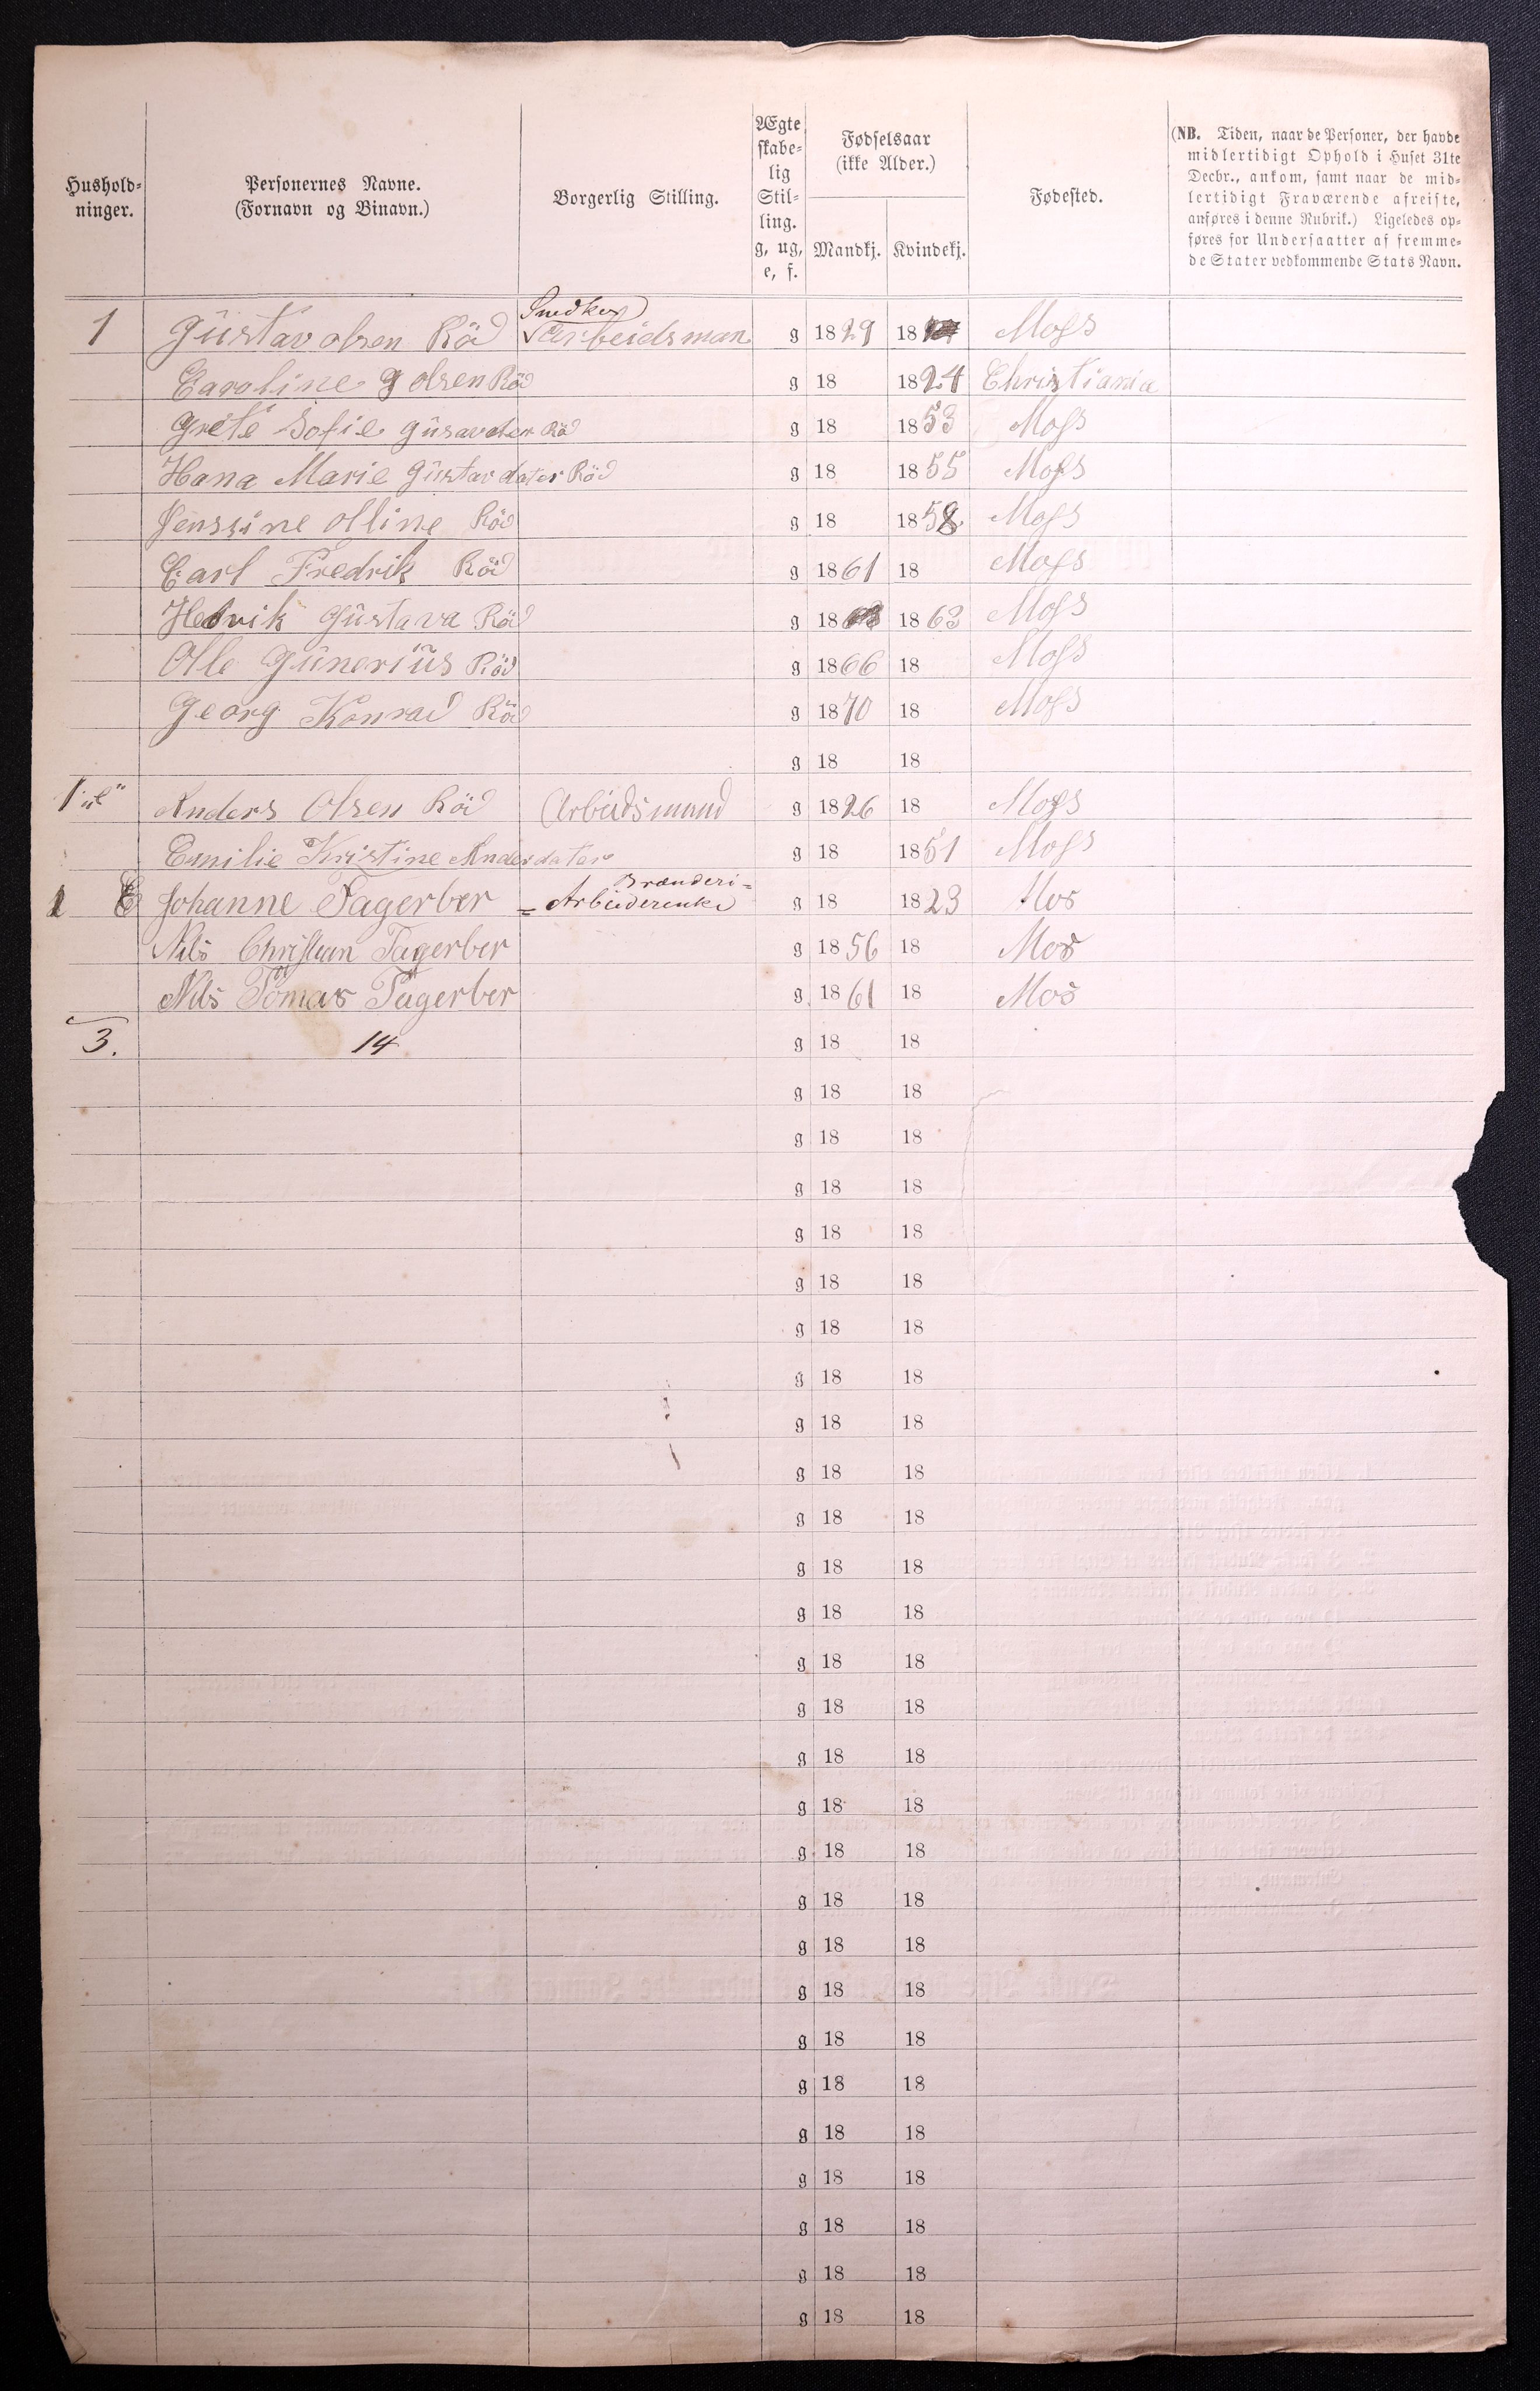 Hushold-
ninger.
Personernes Navne.
(Fornavn og Binavn.)
Borgerlig Stilling.
Ægte
skabe-
lig
Stil-
ling.
g, ug,
e, f.
Fødselsaar
(ikke Alder.)
Mandkj. Kvindekj.
Fødested.
(NB. Tiden, naar de Personer, der havde
midlertidigt Ophold i Huset 31te
Decbr., ankom, samt naar de mid-
lertidigt Fraværende afreiste,
anføres i denne Rubrik.) Ligeledes op-
føres for Undersaatter af fremme-
de Stater vedkommende Stats Navn.
Snedker
1 Güstav olsen Röd Arbeidsman g 1829 18 Moss
Caroline g olsen Röd g 18 1824 Christiania
Grete Sofie güsavdter Röd g 18 1853 Moss
Hana Marie güstavdater Röd g 18 1855 Moss
Jenssine olline Röd g 18 1858 Moss
Carl Fredrik Röd g 1861 18 Moss
Hedvik güstava Röd g 18 1863 Moss
Olle günerius Röd g 1866 18 Moss
Georg Konrad Röd g 1870 18 Moss
g 18 18
1 "e" Anders Olsen Röd Arbeidsmand g 1826 18 Moss
Emilie Kristine Andersdater g 18 1851 Moss
Brænderi=
1 E Johanne Fagerber =Arbeiderenke g 18 1823 Mos
Nils Christian Fagerber g 1856 18 Mos
Nils Tomas Fagerber g 1861 18 Mos
3. 14 g 18 18
g 18 18
g 18 18
g 18 18
g 18 18
g 18 18
g 18 18
g 18 18
g 18 18
g 18 18
g 18 18
g 18 18
g 18 18
g 18 18
g 18 18
g 18 18
g 18 18
g 18 18
g 18 18
g 18 18
g 18 18
g 18 18
g 18 18
g 18 18
g 18 18
g 18 18
g 18 18
g 18 18